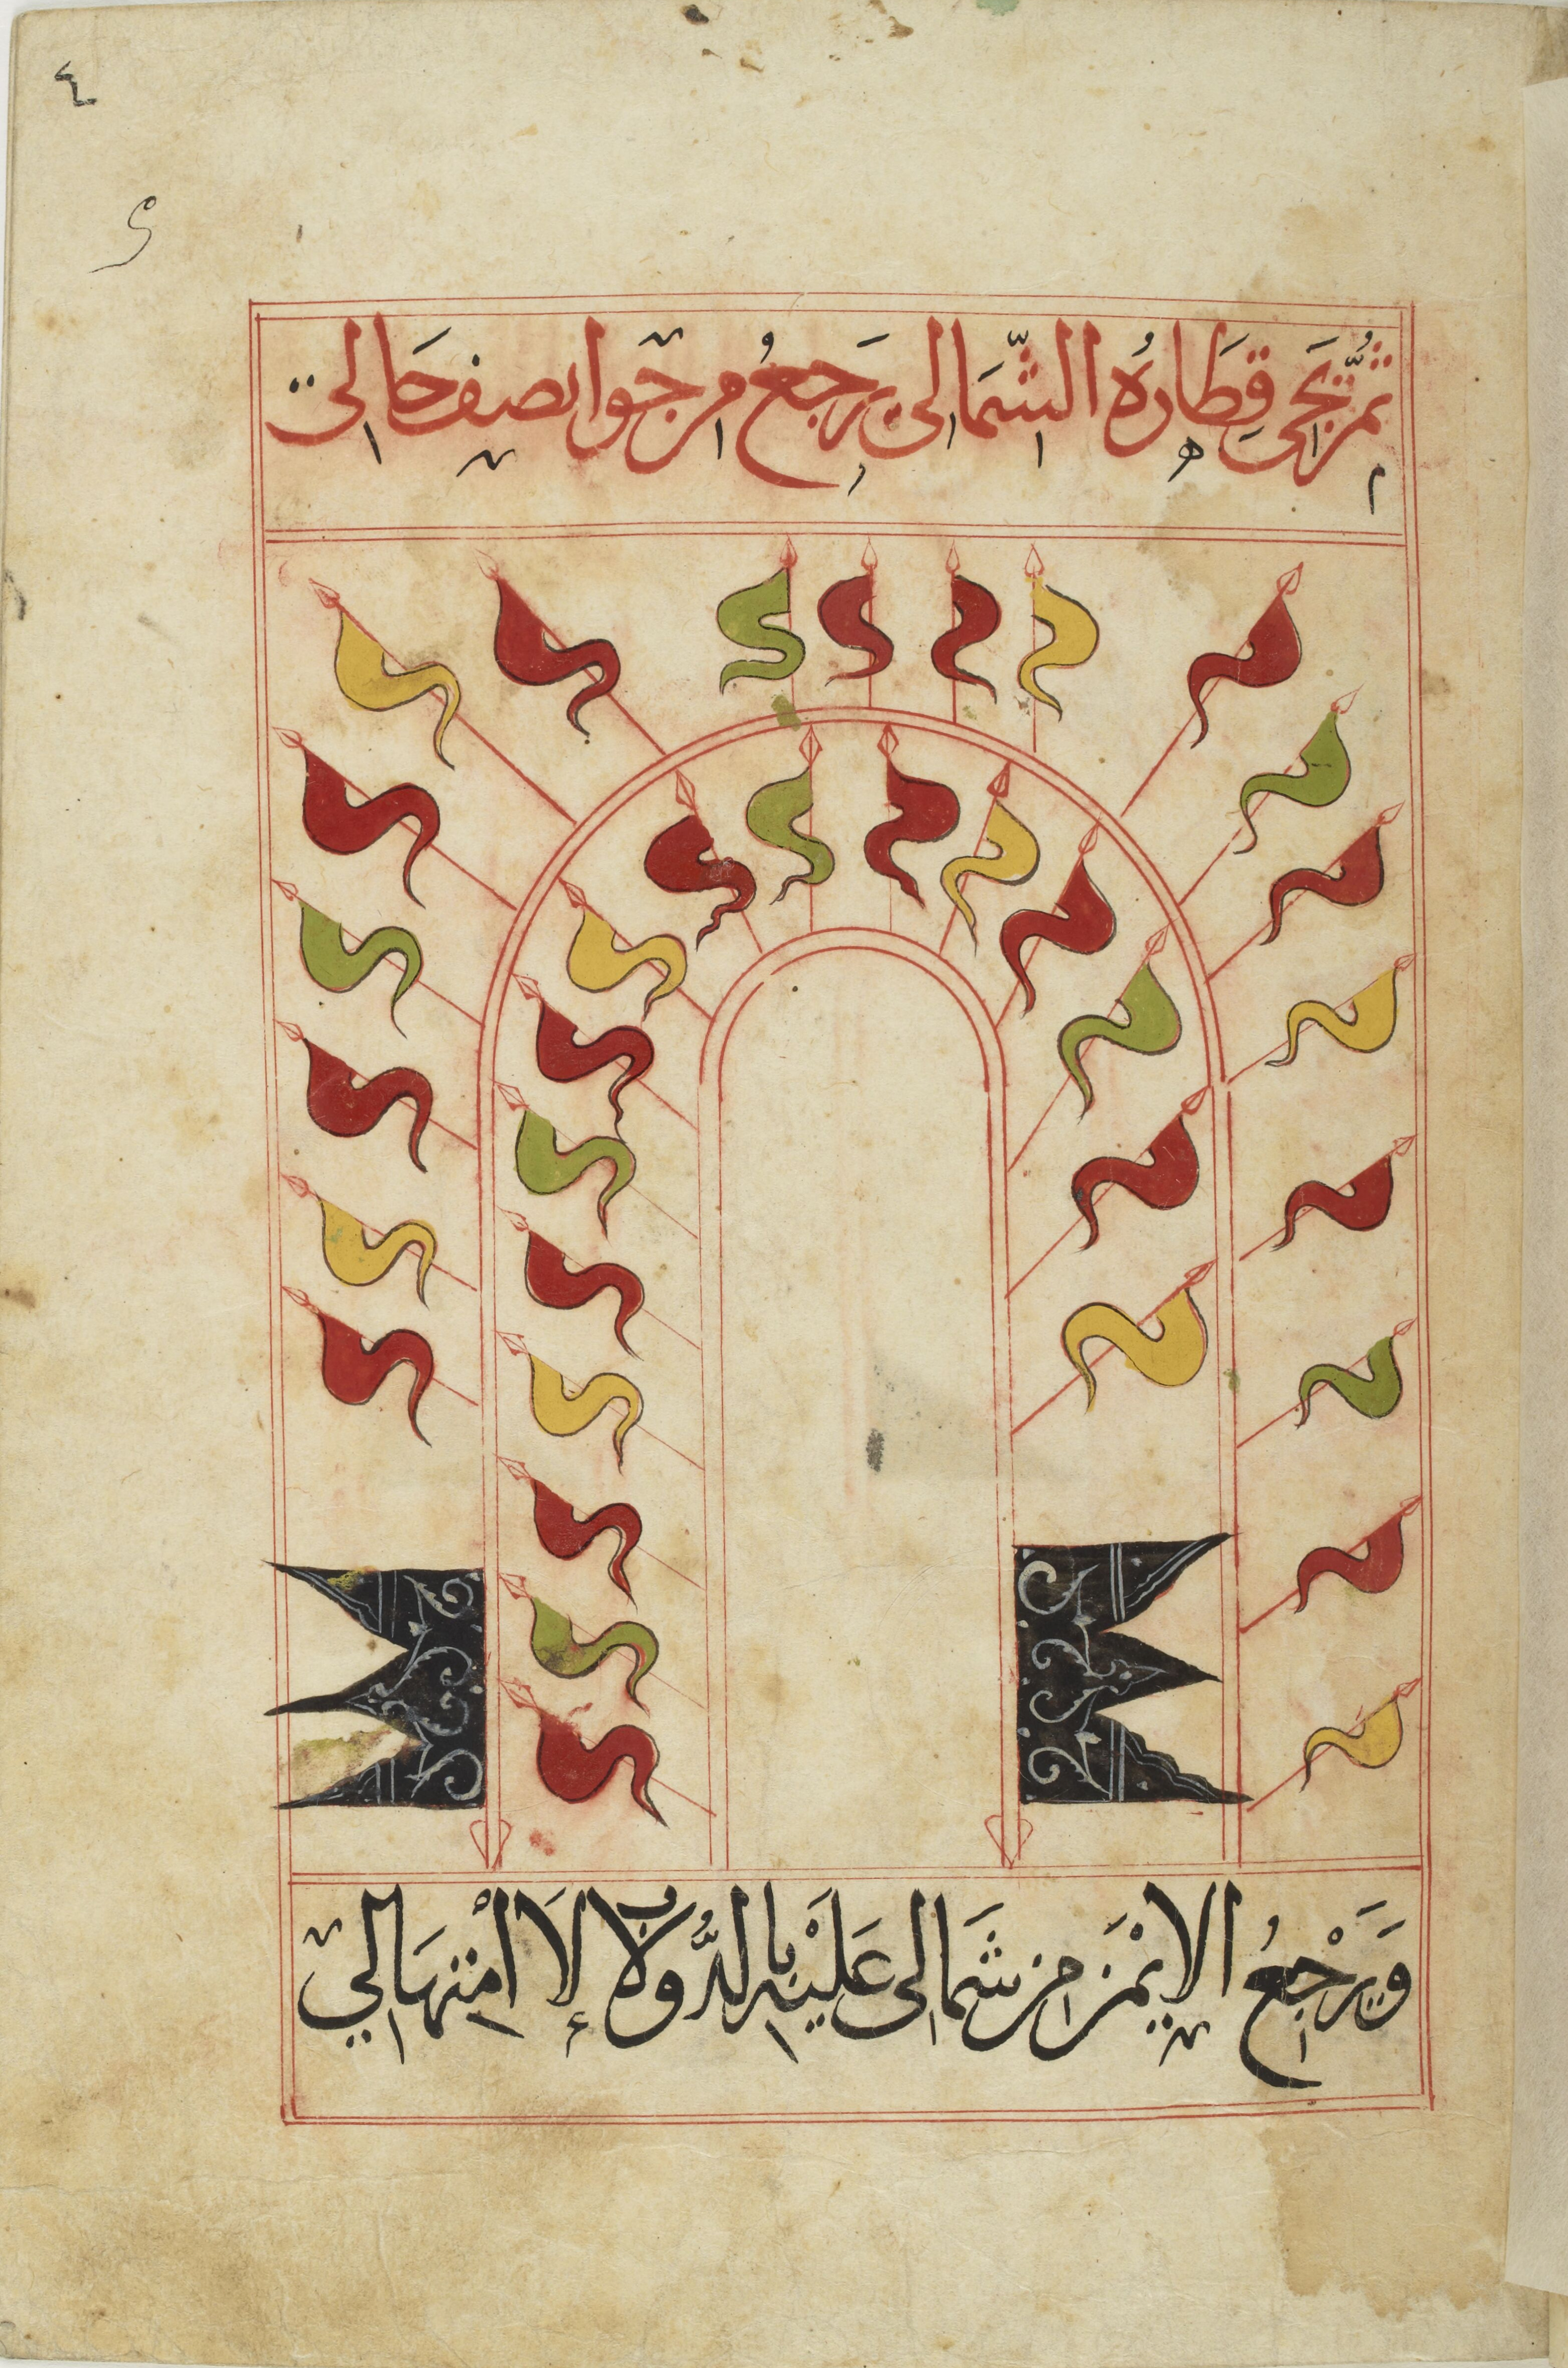 ٤
ثُمَّ تَجَى قِطَارُهُ الشِّمَالى يَرجَعُ مر جَوا نصف حَالى
وَيَرْجَعُ الايْمَن من شَمَالى عَلَيْه بالدُّولاب إلَا امْنتهَالي